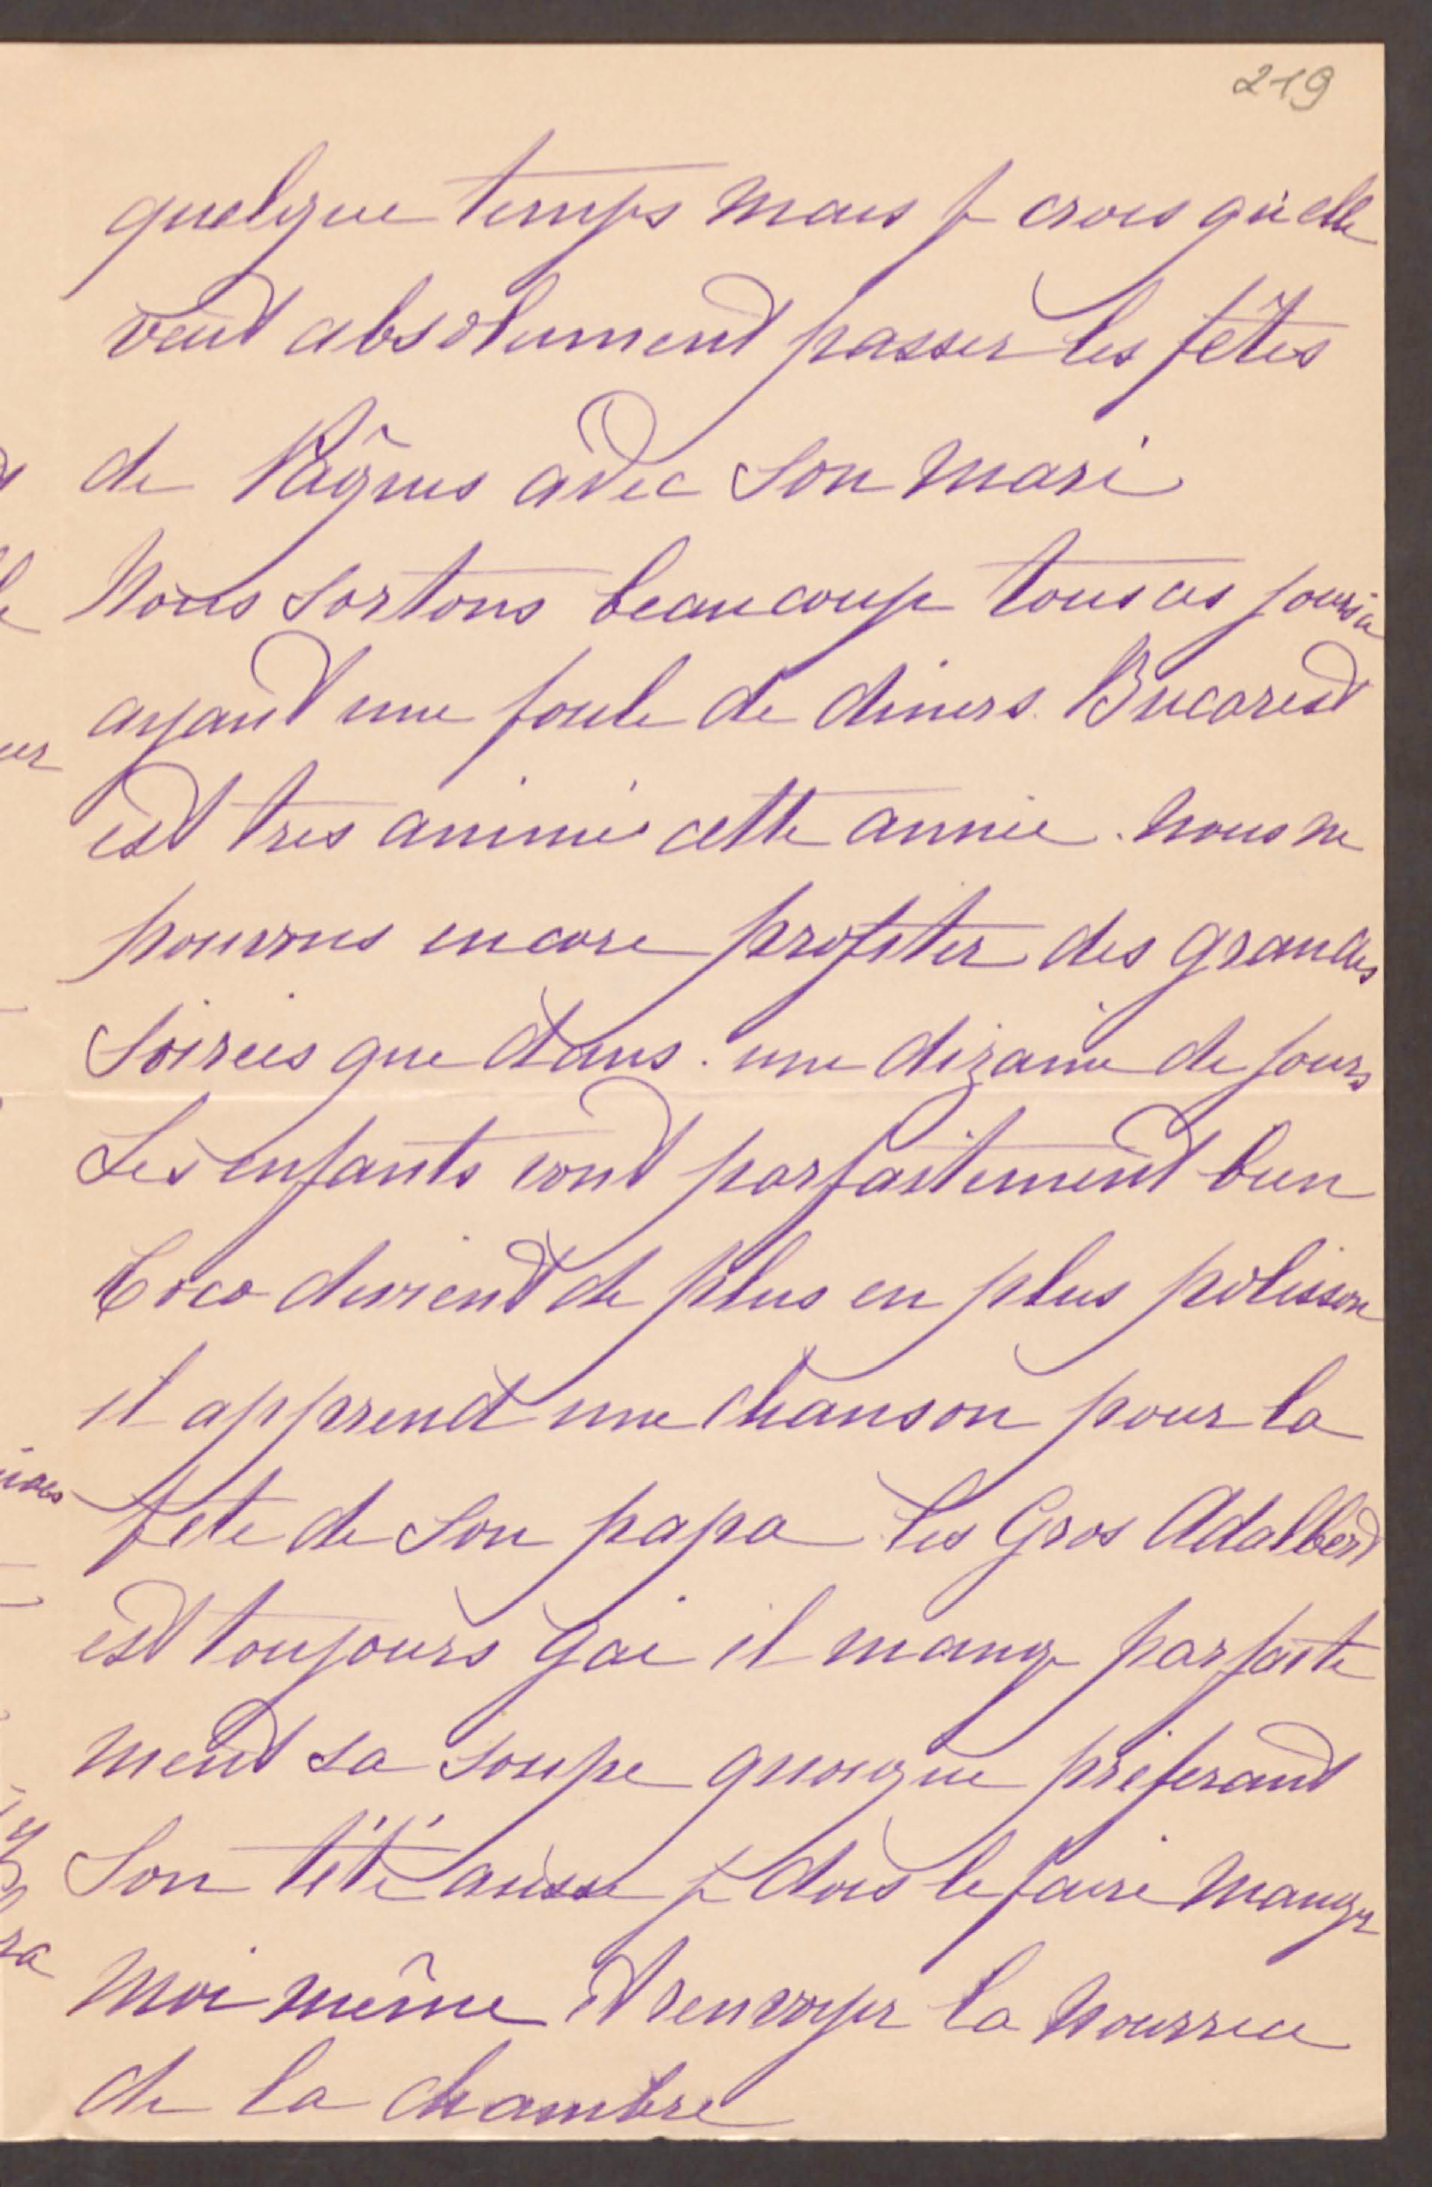 219
quelque temps mais je crois qu'elle
veut absolument passer les fêtes
de Pâques avec son mari
Nous sortons beaucoup tous ces jours ci
ayant une foule de diners. Bucarest
est tres animé cette année. Nous ne
pouvons encore profiter des grandes
Soirées que dans une dizaine de jours
Les enfants vont parfaitement bien
Coco devient de plus en plus polisson
il apprend une chanson pour la
fete de son papa Les Gros Adalbert
est toujours gai il mange parfaite
ment sa soupe quoique préferant
Son tété aussi je dois le faire manger
moi même et renvoyer la nourrice
de la chambre